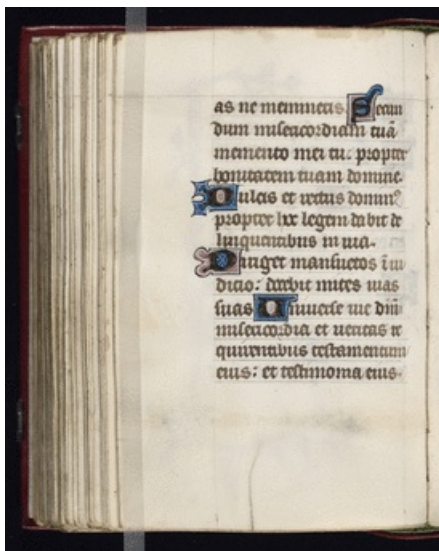 as ne memineris. Secun
dum misericordiam tuā
memento mei tu. propter
bonitatem tuam domine.
Dulcis et rectus domin⁹
propter hoc legem dabit de
linquentibus in via.
Diriget mansuetos ī iu
dicio: docebit mites vias
suas Universe vie dn̄i
misericordia et veritas re
quirentibus testamentum
eius: et testimonia eius.